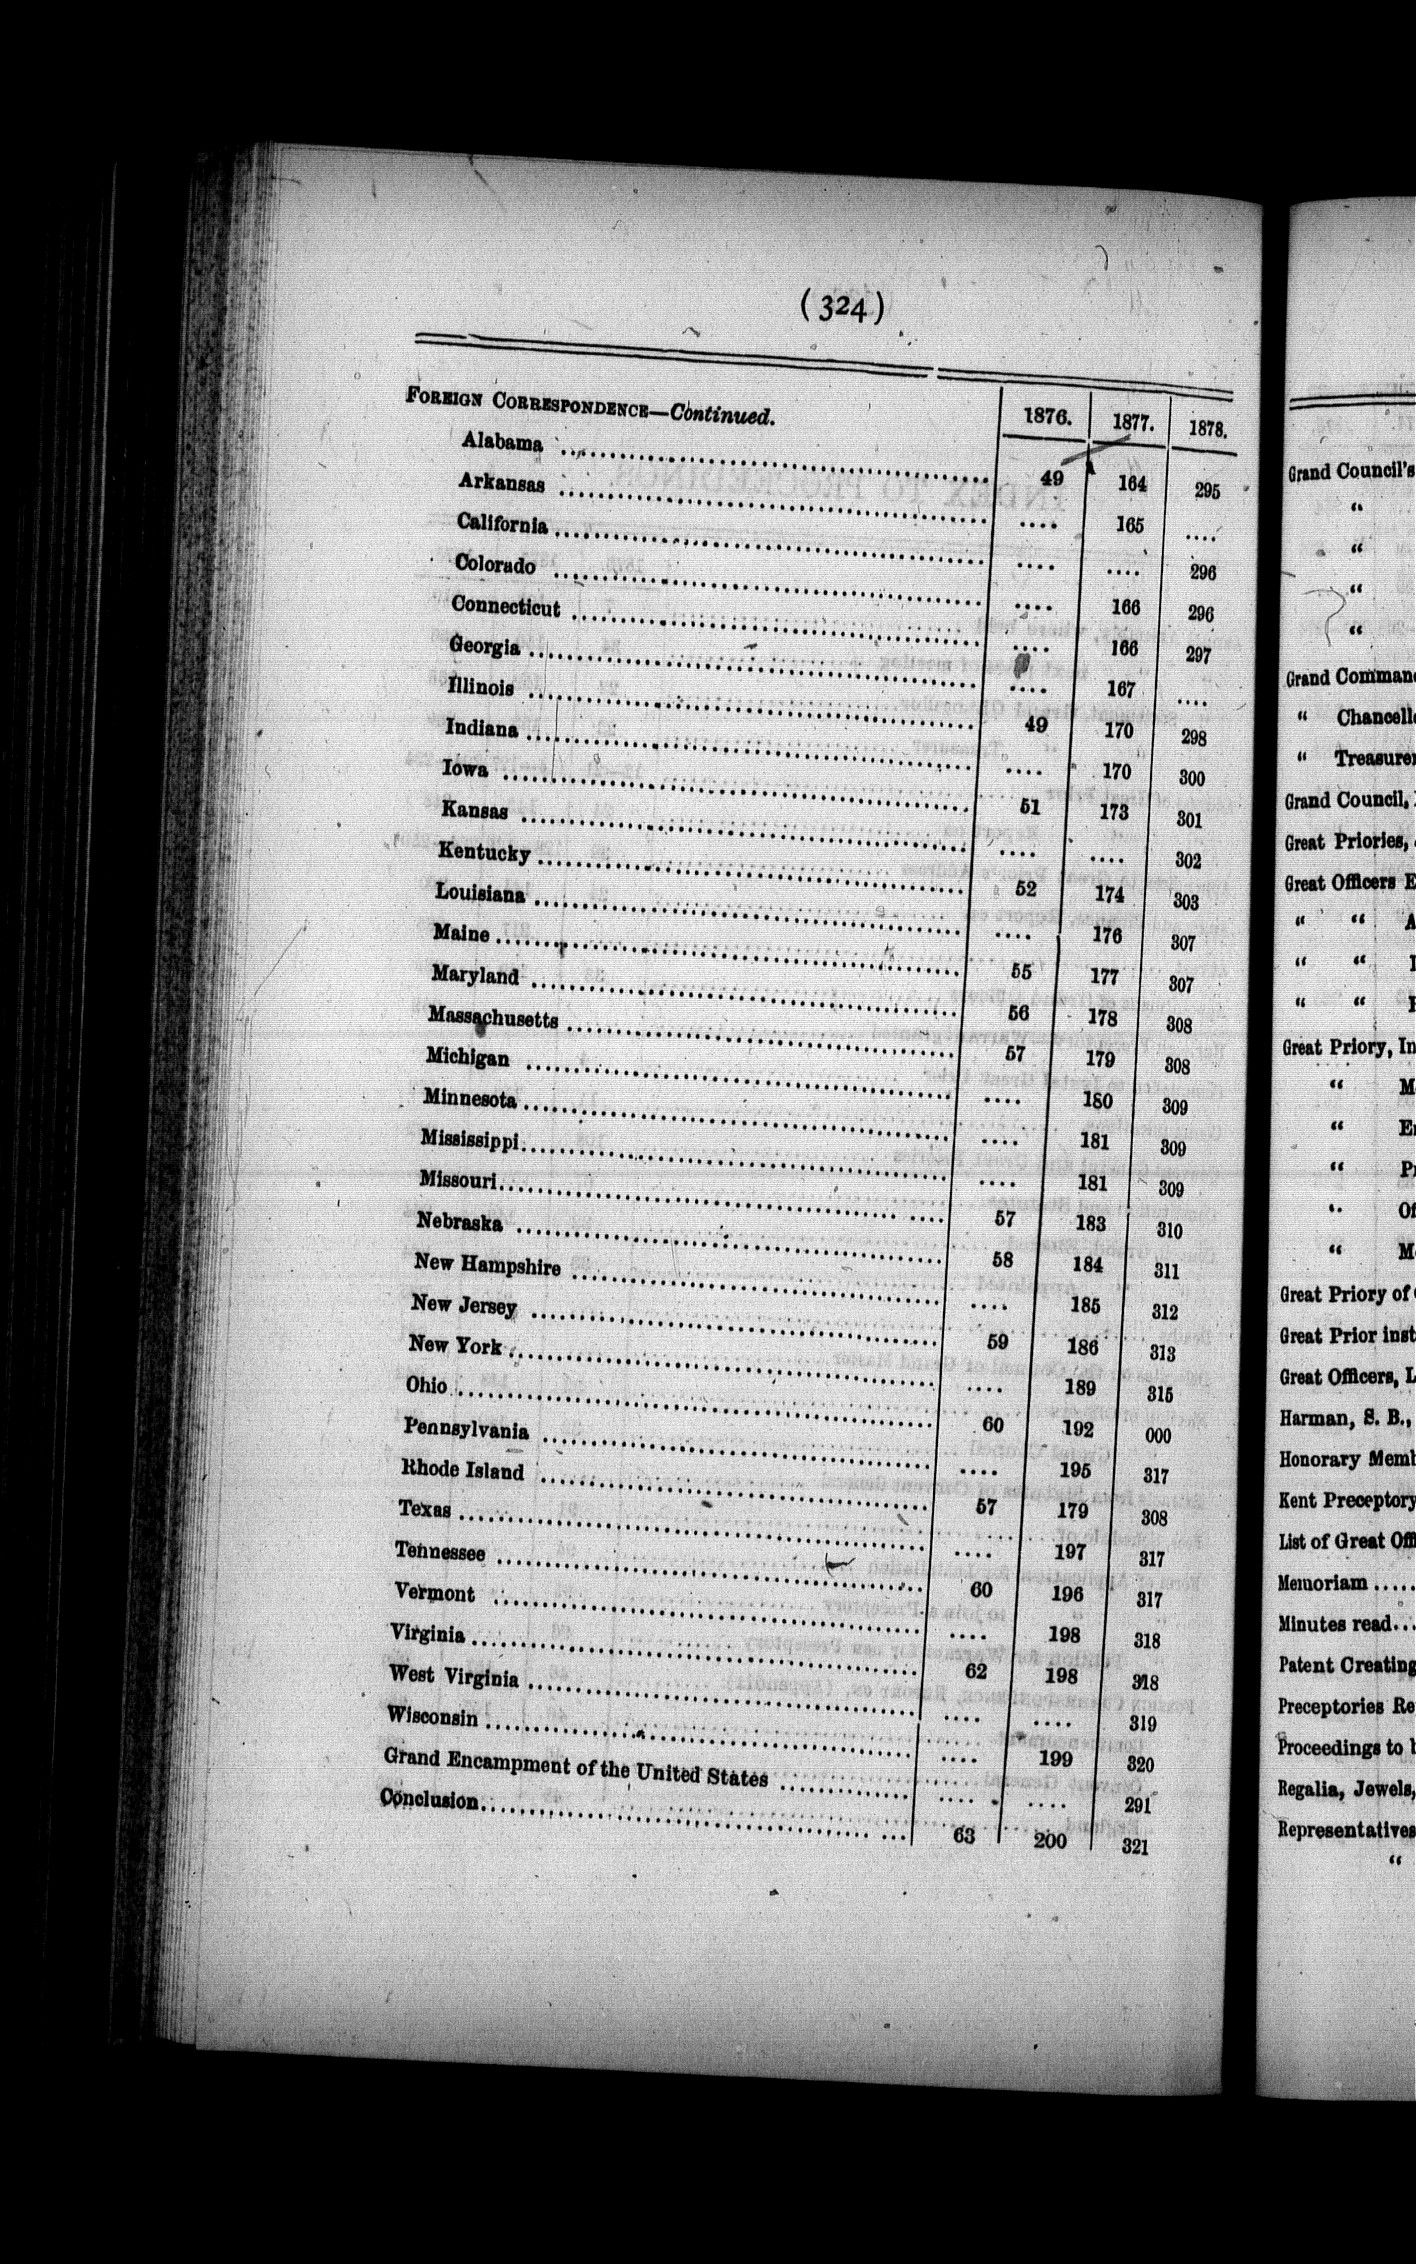 (324)
FOREIGN CORRESPONDENCE—Continued. 1876. 1877. 1878.
Alabama .......... 49 164 295
Arkansas .......... .... 165 ....
California .......... .... .... 296
Colorado .......... .... 166 296
Connecticut .......... .... 166 297
Georgia .......... .... 167 ....
Illinois .......... 49 170 298
Indiana .......... .... 170 300
Iowa .......... 51 173 301
Kansas .......... .... .... 302
Kentucky .......... 52 174 303
Louisiana .......... .... 176 307
Maine .......... 55 177 307
Maryland .......... 56 178 308
Massachusetts .......... 57 179 308
Michigan .......... .... 180 309
Minnesota .......... .... 181 309
Mississippi .......... .... 181 309
Missouri .......... 57 183 310
Nebraska .......... 58 184 311
New Hampshire .......... .... 185 312
New Jersey .......... 59 186 313
New York .......... .... 189 315
Ohio .......... 60 192 000
Pennsylvania .......... .... 195 317
Rhode Island .......... 57 179 308
Texas .......... .... 197 317
Tennessee .......... 60 196 317
Vermont .......... .... 198 318
Virginia .......... 62 198 318
West Virginia .......... .... .... 319
Wisconsin .......... .... 199 320
Grand Encampment of the United States .......... .... .... 291
Conclusion .......... 63 200 321
Grand Council's
“
“
“
“
Grand Comman
“ Chancell
“ Treasure
Grand Council,
Great Priories,
Great Officers E
“ “ A
“ “
“ “
Great Priory, In
“ M
“ E
“ P
“ Of
“ M
Great Priory of
Great Prior inst
Great Officers, L
Harman, S. B.,
Honorary Memb
Kent Preceptory
List of Great Off
Memoriam ....
Minutes read...
Patent Creating
Preceptories Re
Proceedings to b
Regalia, Jewels,
Representatives
“